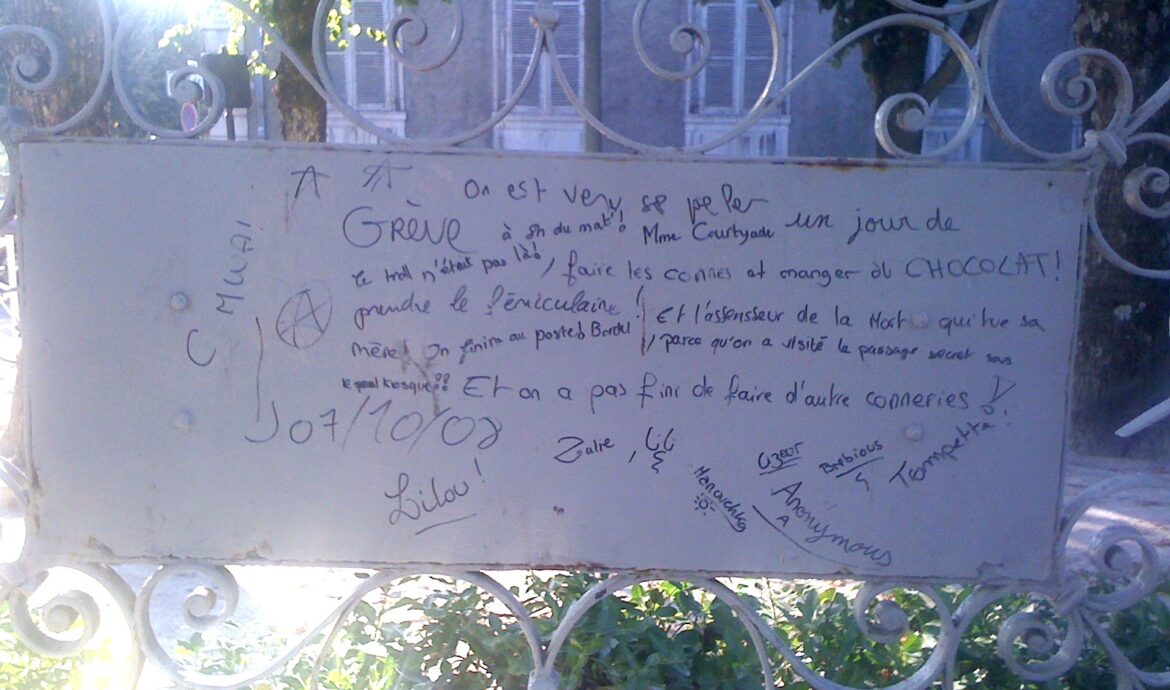 On est venu se peler
GRÈVE à 5h du mat'! Mme Courtyade un jour de
le troll n'était pas là!, faire les connes et manger du CHOCOLAT!
prendre le féniculaire! Et l'assensseur de la Mort qui tue sa
mère! On finira au poste! Bordel!, parce qu'on a visité le passage secret sous
kiosque!! Et on a pas fini de faire d'autre conneries!
J 07/10/08
C MWAI
Zalie,
Lilou!
Manouchka
Uzeor
Brebious
Tompetta
Anonymous
A